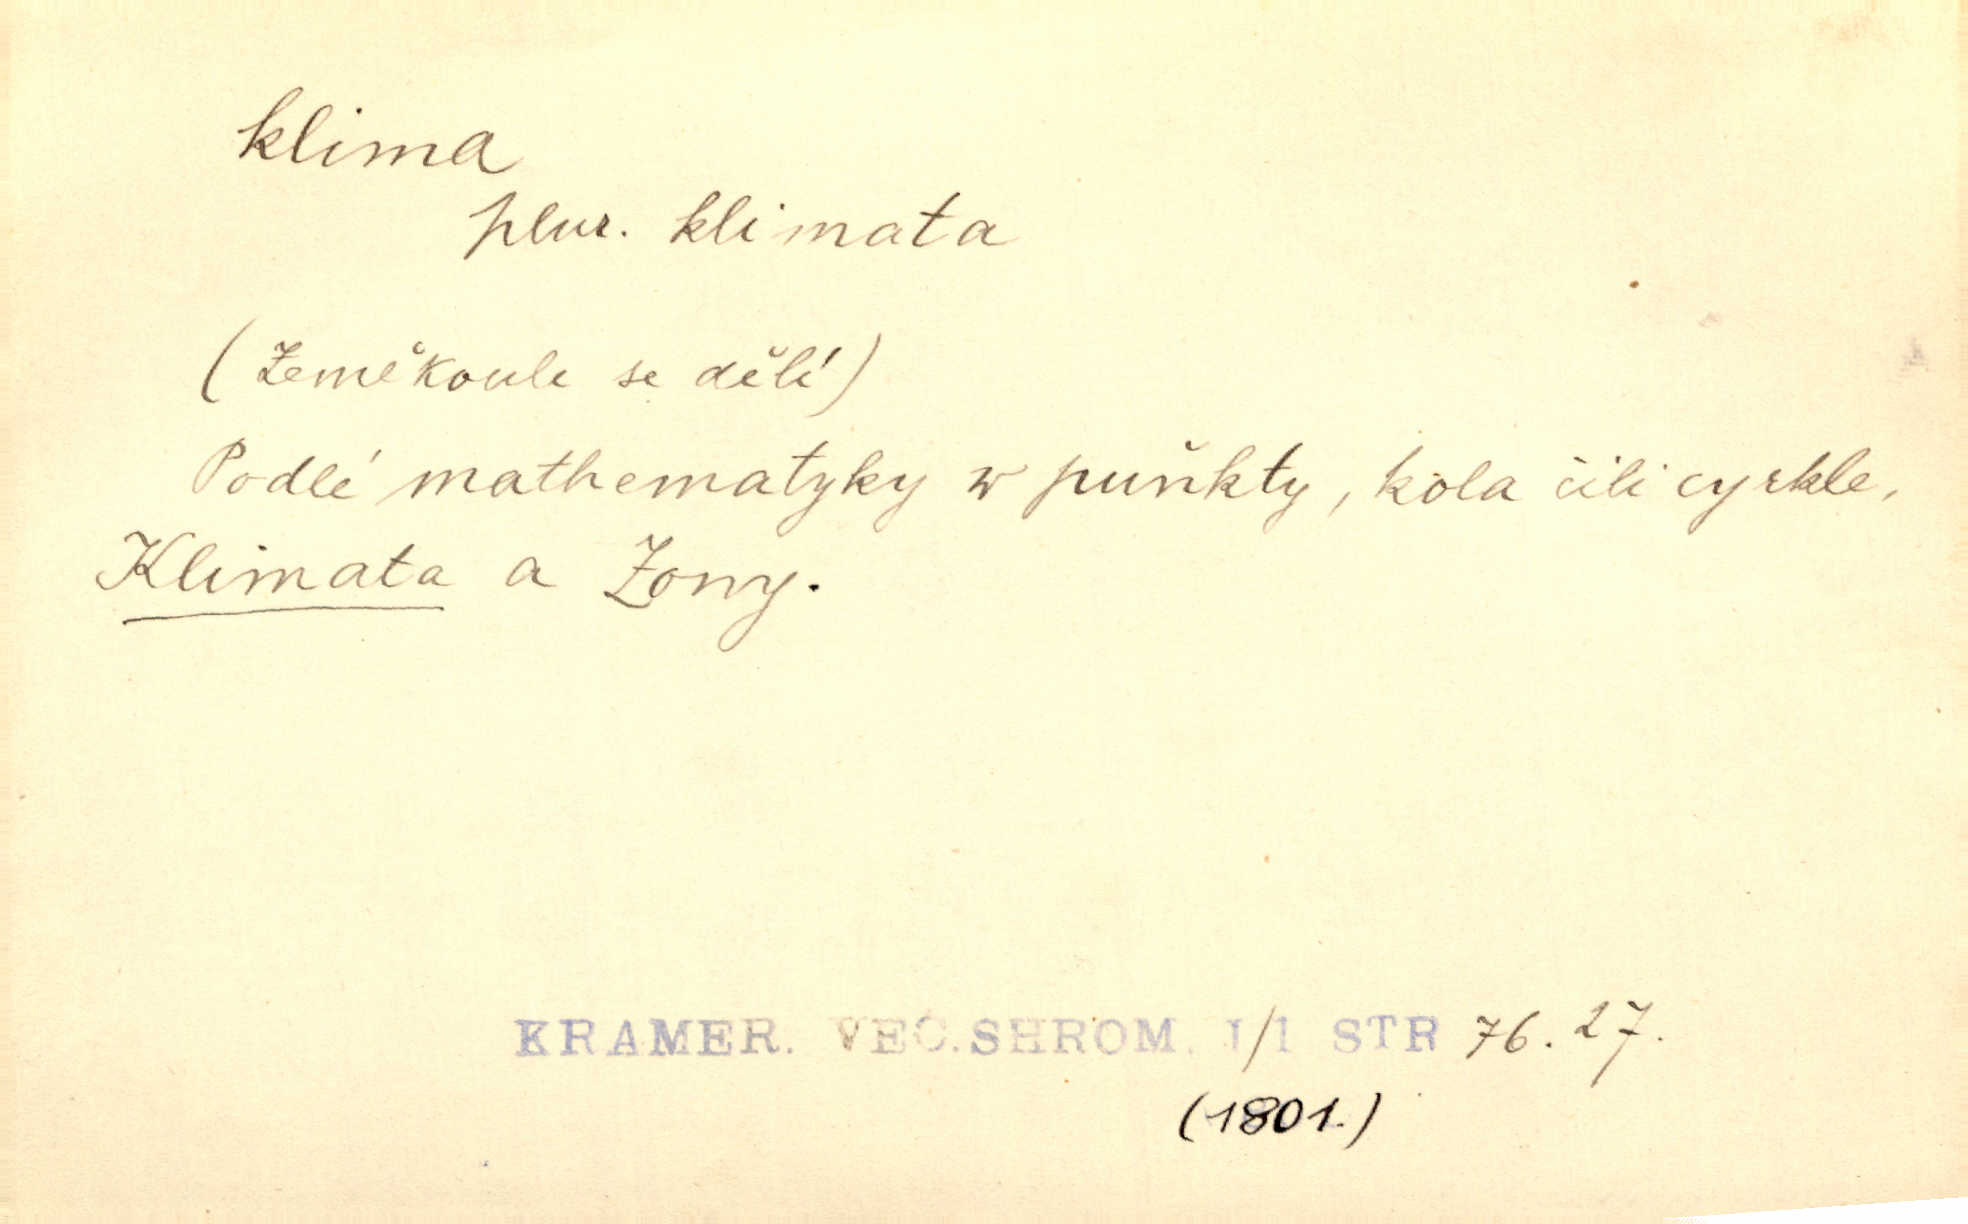 klima
plur. klimata
(Zeměkoule se dělí)
Podlé mathematyky w puňkty, kola čili cyrkle,
Klimata a Zony.
KRAMER. VEČ.SHROM. I/1 STR 76.27.
(1801.)